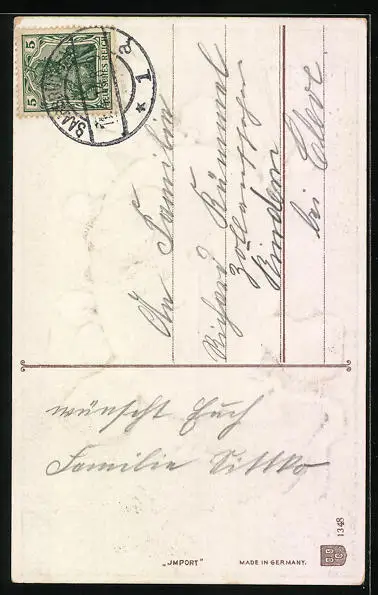 5
DEUTSCHES REICH
5
* 1 a
An Familie
Richard Kümmel
Zollaufseher
Kindern
bei Cleve
wünscht Euch
Familie Sittko
„JMPORT"
MADE IN GERMANY.
1348